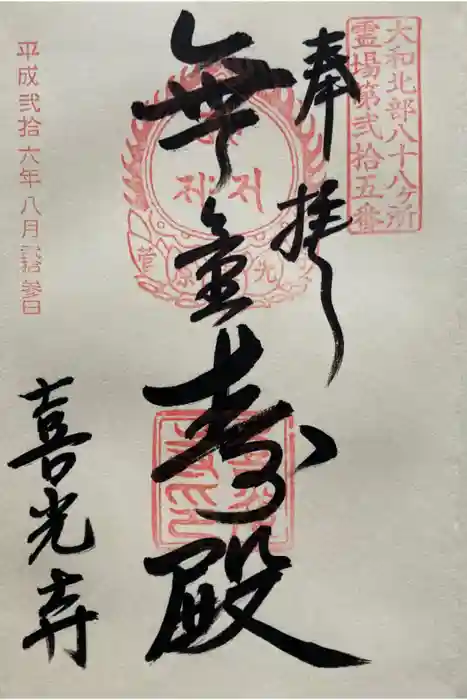 大和北部八十八ヶ所
霊場第弐拾五番
奉拝
無量寿殿
菅原
光
喜光寺
平成弐拾六年八月弐拾参日